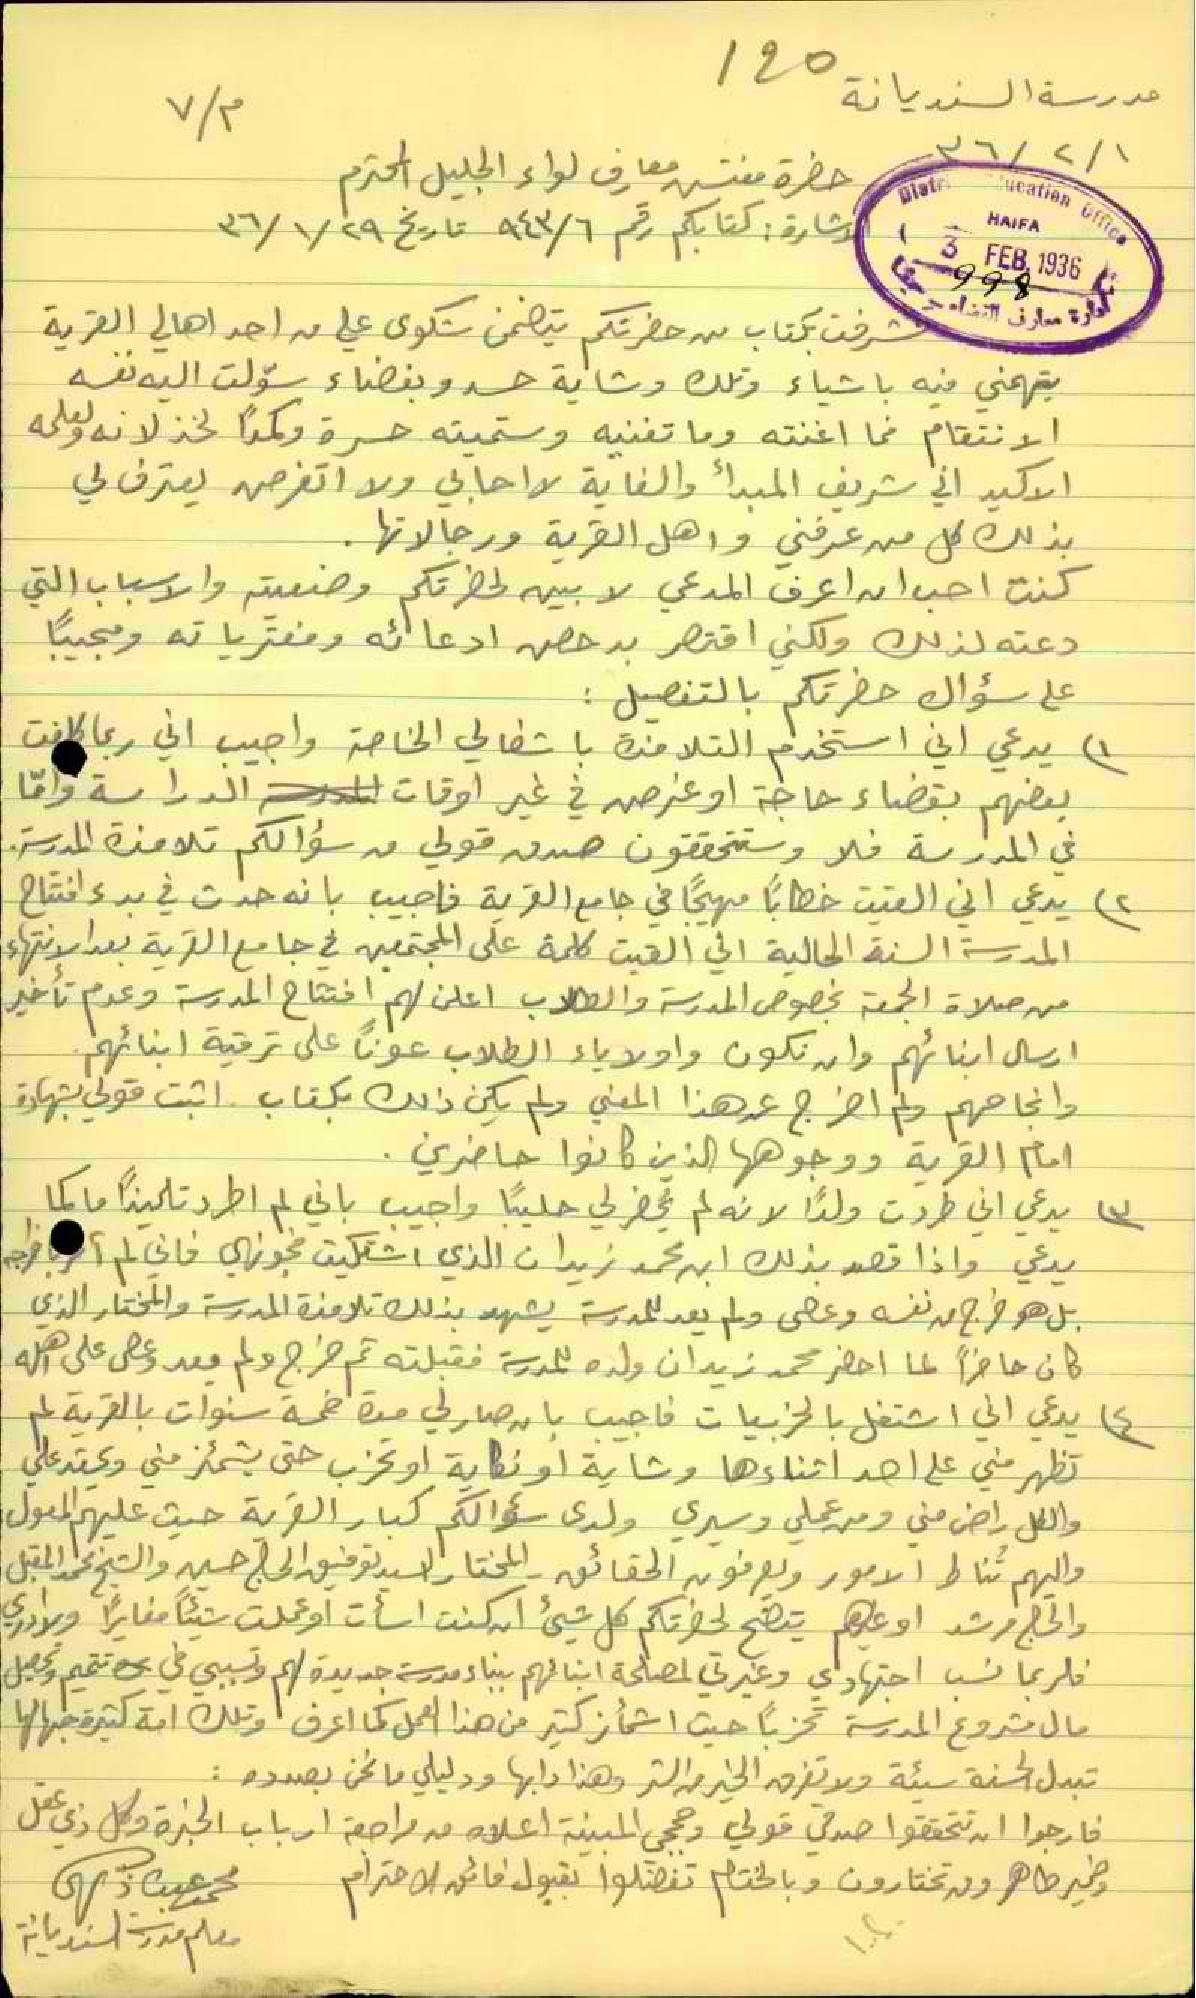 ١٤٥
مدرسة السنديانة
م/٧
٣٦/٢/١
حضرة مفتش معارف لواء الجليل المحترم
الاشارة: كتابكم رقم ٩٤٣/٦ تاريخ ٣٦/١/٢٩
District Education Office
HAIFA
3 FEB. 1936
998
ادارة معارف القضاء حيفا
تشرفت بكتاب من حضرتكم يتضمن شكوى علي من احد اهالي القرية
يتهمني فيه باشياء وتلك وشاية حسد وبغضاء سوّلت اليه نفسه
الانتقام فما اغنته وما تغنيه وستميته حسرة وكمداً لخذلانه ولعلمه
الاكيد اني شريف المبدأ والغاية لا احابي ولا اتغرض يعترف لي
بذلك كل من عرفني واهل القرية ورجالاتها.
كنت احب ان اعرف المدعي لابين لحضرتكم وضعيته والاسباب التي
دعته لذلك ولكني اقتصر بدحض ادعائه ومفترياته ومجيباً
على سؤال حضرتكم بالتفصيل:
١) يدعي اني استخدم التلامذة باشغالي الخاصة واجيب اني ربما كلفت
بعضهم بقضاء حاجة او غرض في غير اوقات الدراسة وامّا
في المدرسة فلا وستتحققون صدق قولي من سؤالكم تلامذة المدرسة.
٢) يدعي اني القيت خطاباً مهيجاً في جامع القرية فاجيب بانه حدث في بدء افتتاح
المدرسة السنة الحالية اني القيت كلمة على المجتمعين في جامع القرية بعد الانتهاء
من صلاة الجمعة بخصوص المدرسة والطلاب اعلن لهم افتتاح المدرسة وعدم تأخير
ارسال ابنائهم وان نكون واولياء الطلاب عوناً على ترقية ابنائهم
وانجاحهم ولم اخرج عن هذا المعنى ولم يكن ذلك بكتاب. اثبت قولي بشهادة
امام القرية ووجوهها الذين كانوا حاضرين.
٣) يدعي اني طردت ولداً لانه لم يحضر لي حليباً واجيب باني لم اطرد تلميذاً ما كما
يدعي واذا قصد بذلك ابن محمد زيدان الذي اشتكيت فاني لم آمر باخراجه
بل هو خرج من نفسه وعصى ولم يعد للمدرسة يشهد بذلك تلامذة المدرسة والمختار الذي
كان حاضراً لما احضر محمد زيدان ولده للمدرسة فقبلته ثم خرج ولم يعد وعصى على اهله
٤) يدعي اني اشتغل بالحزبيات فاجيب بان صار لي مدة خمسة سنوات بالقرية لم
تظهر مني على احد اثناءها وشاية او نكاية او تحزب حتى يشمئز مني ويحقد علي
والكل راض مني ومن عملي وسيري ولدى سؤالكم كبار القرية حيث عليهم المعول
واليهم تُناط الامور ويعرفون الحقائق المختار السيد توفيق الحاج حسين والشيخ محمد المقبل
والحاج مرشد او غيرهم يتضح لحضرتكم كل شيئ ان كنت اسأت او عملت شيئاً مغايراً ولا ادري
فلربما نسب اجتهادي وغيرتي لمصلحة ابنائهم ببناء مدرسة جديدة لهم وتسببي في تتميم وتحصيل
مال مشروع المدرسة تحزباً حيث اشمأز كثير من هذا العمل كما اعرف وتلك امة كثيرة جهالها
تبدل الحسنة سيئة ولا تفرق الخير من الشر وهذا دابها ودليلي ما نحن بصدده:
فارجوا ان تتحققوا صدق قولي وحججي المبينة اعلاه من مراجعة ارباب الخبرة وكل ذي عقل
وضمير طاهر ومن تختارون وبالختام تفضلوا بقبول فائق الاحترام
محمد
معلم مدرسة السنديانة